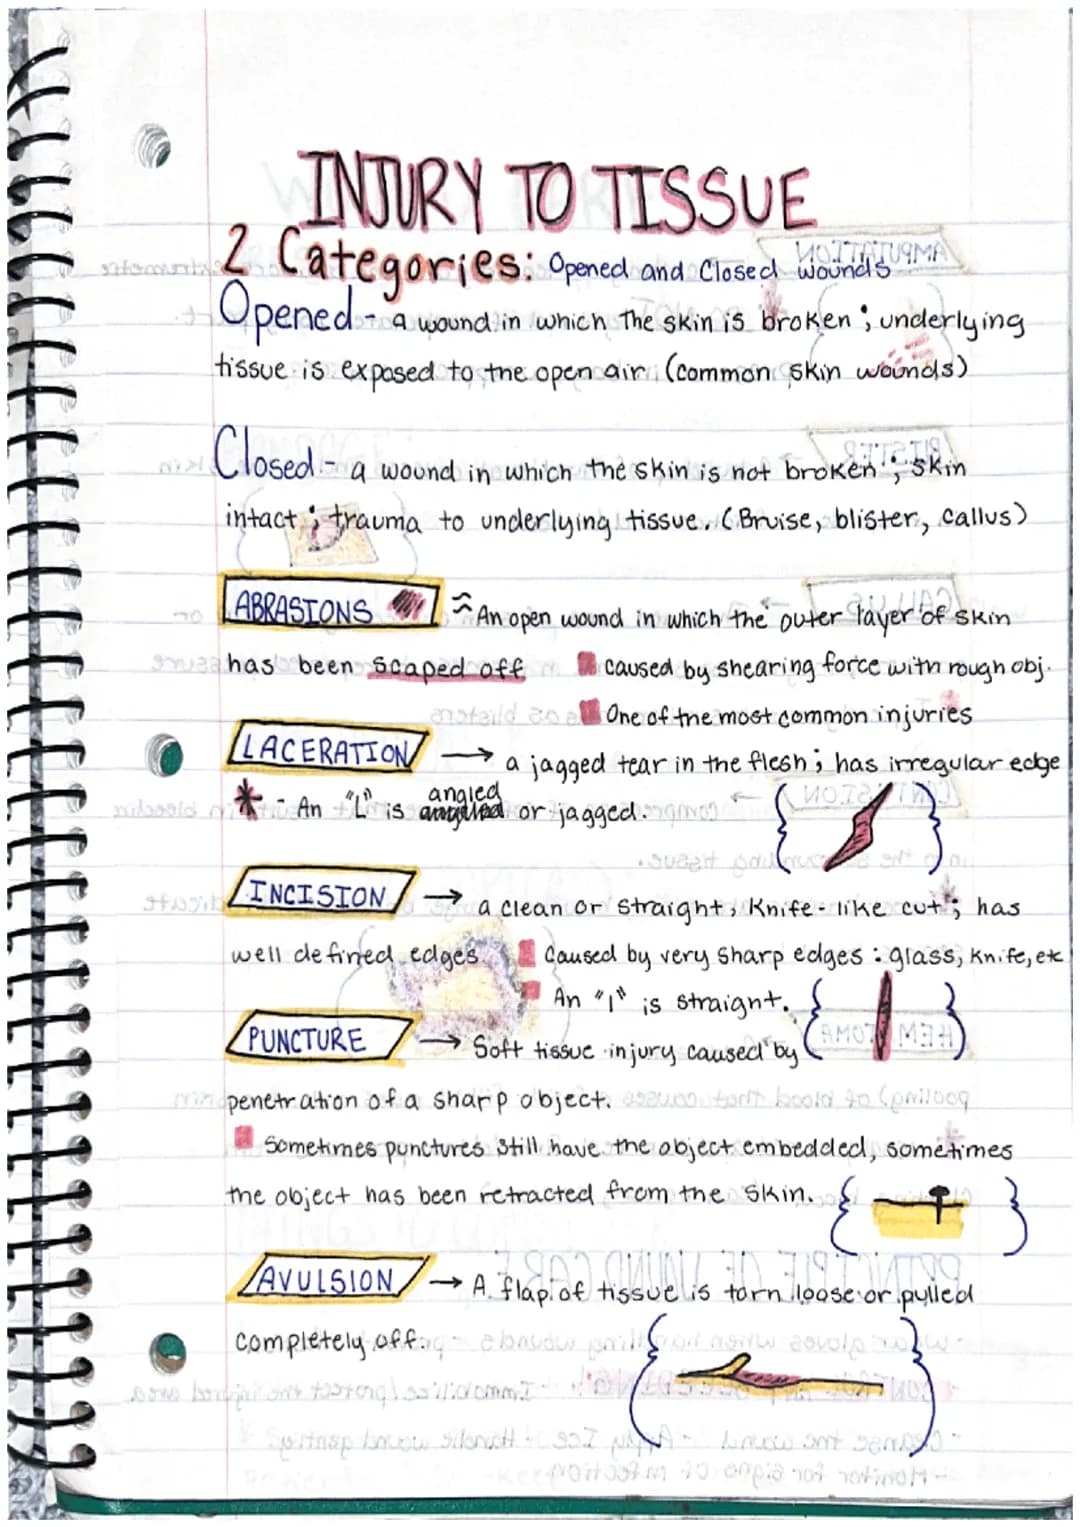 INJURY TO TISSUE
2 Categories: Opened and Closed wounds
Opened - a wound in which the skin is broken; underlying
tissue is exposed to the open air (common skin wounds)
Closed - a wound in which the skin is not broken; skin
intact; trauma to underlying tissue. (Bruise, blister, callus)
ABRASIONS ≈ An open wound in which the outer layer of skin
has been scaped off
caused by shearing force with rough obj.
One of the most common injuries
LACERATION → a jagged tear in the flesh; has irregular edge
* - An "L" is angled or jagged.
INCISION → a clean or straight, knife-like cut; has
well defined edges
Caused by very sharp edges: glass, knife, etc
An "I" is straight.
PUNCTURE → Soft tissue injury caused by
penetration of a sharp object.
Sometimes punctures still have the object embedded, sometimes
the object has been retracted from the skin.
AVULSION → A flap of tissue is torn loose or pulled
completely off.
AMPUTATION
BLISTER
CALLUS
CONTUSION
HEMATOMA
PRINCIPLE OF WOUND CARE
- Wear gloves when handling wounds
- Immobilize/protect the injured area
- Cleanse the wound - Apply Ice - Handle wound gently
- Monitor for signs of infection